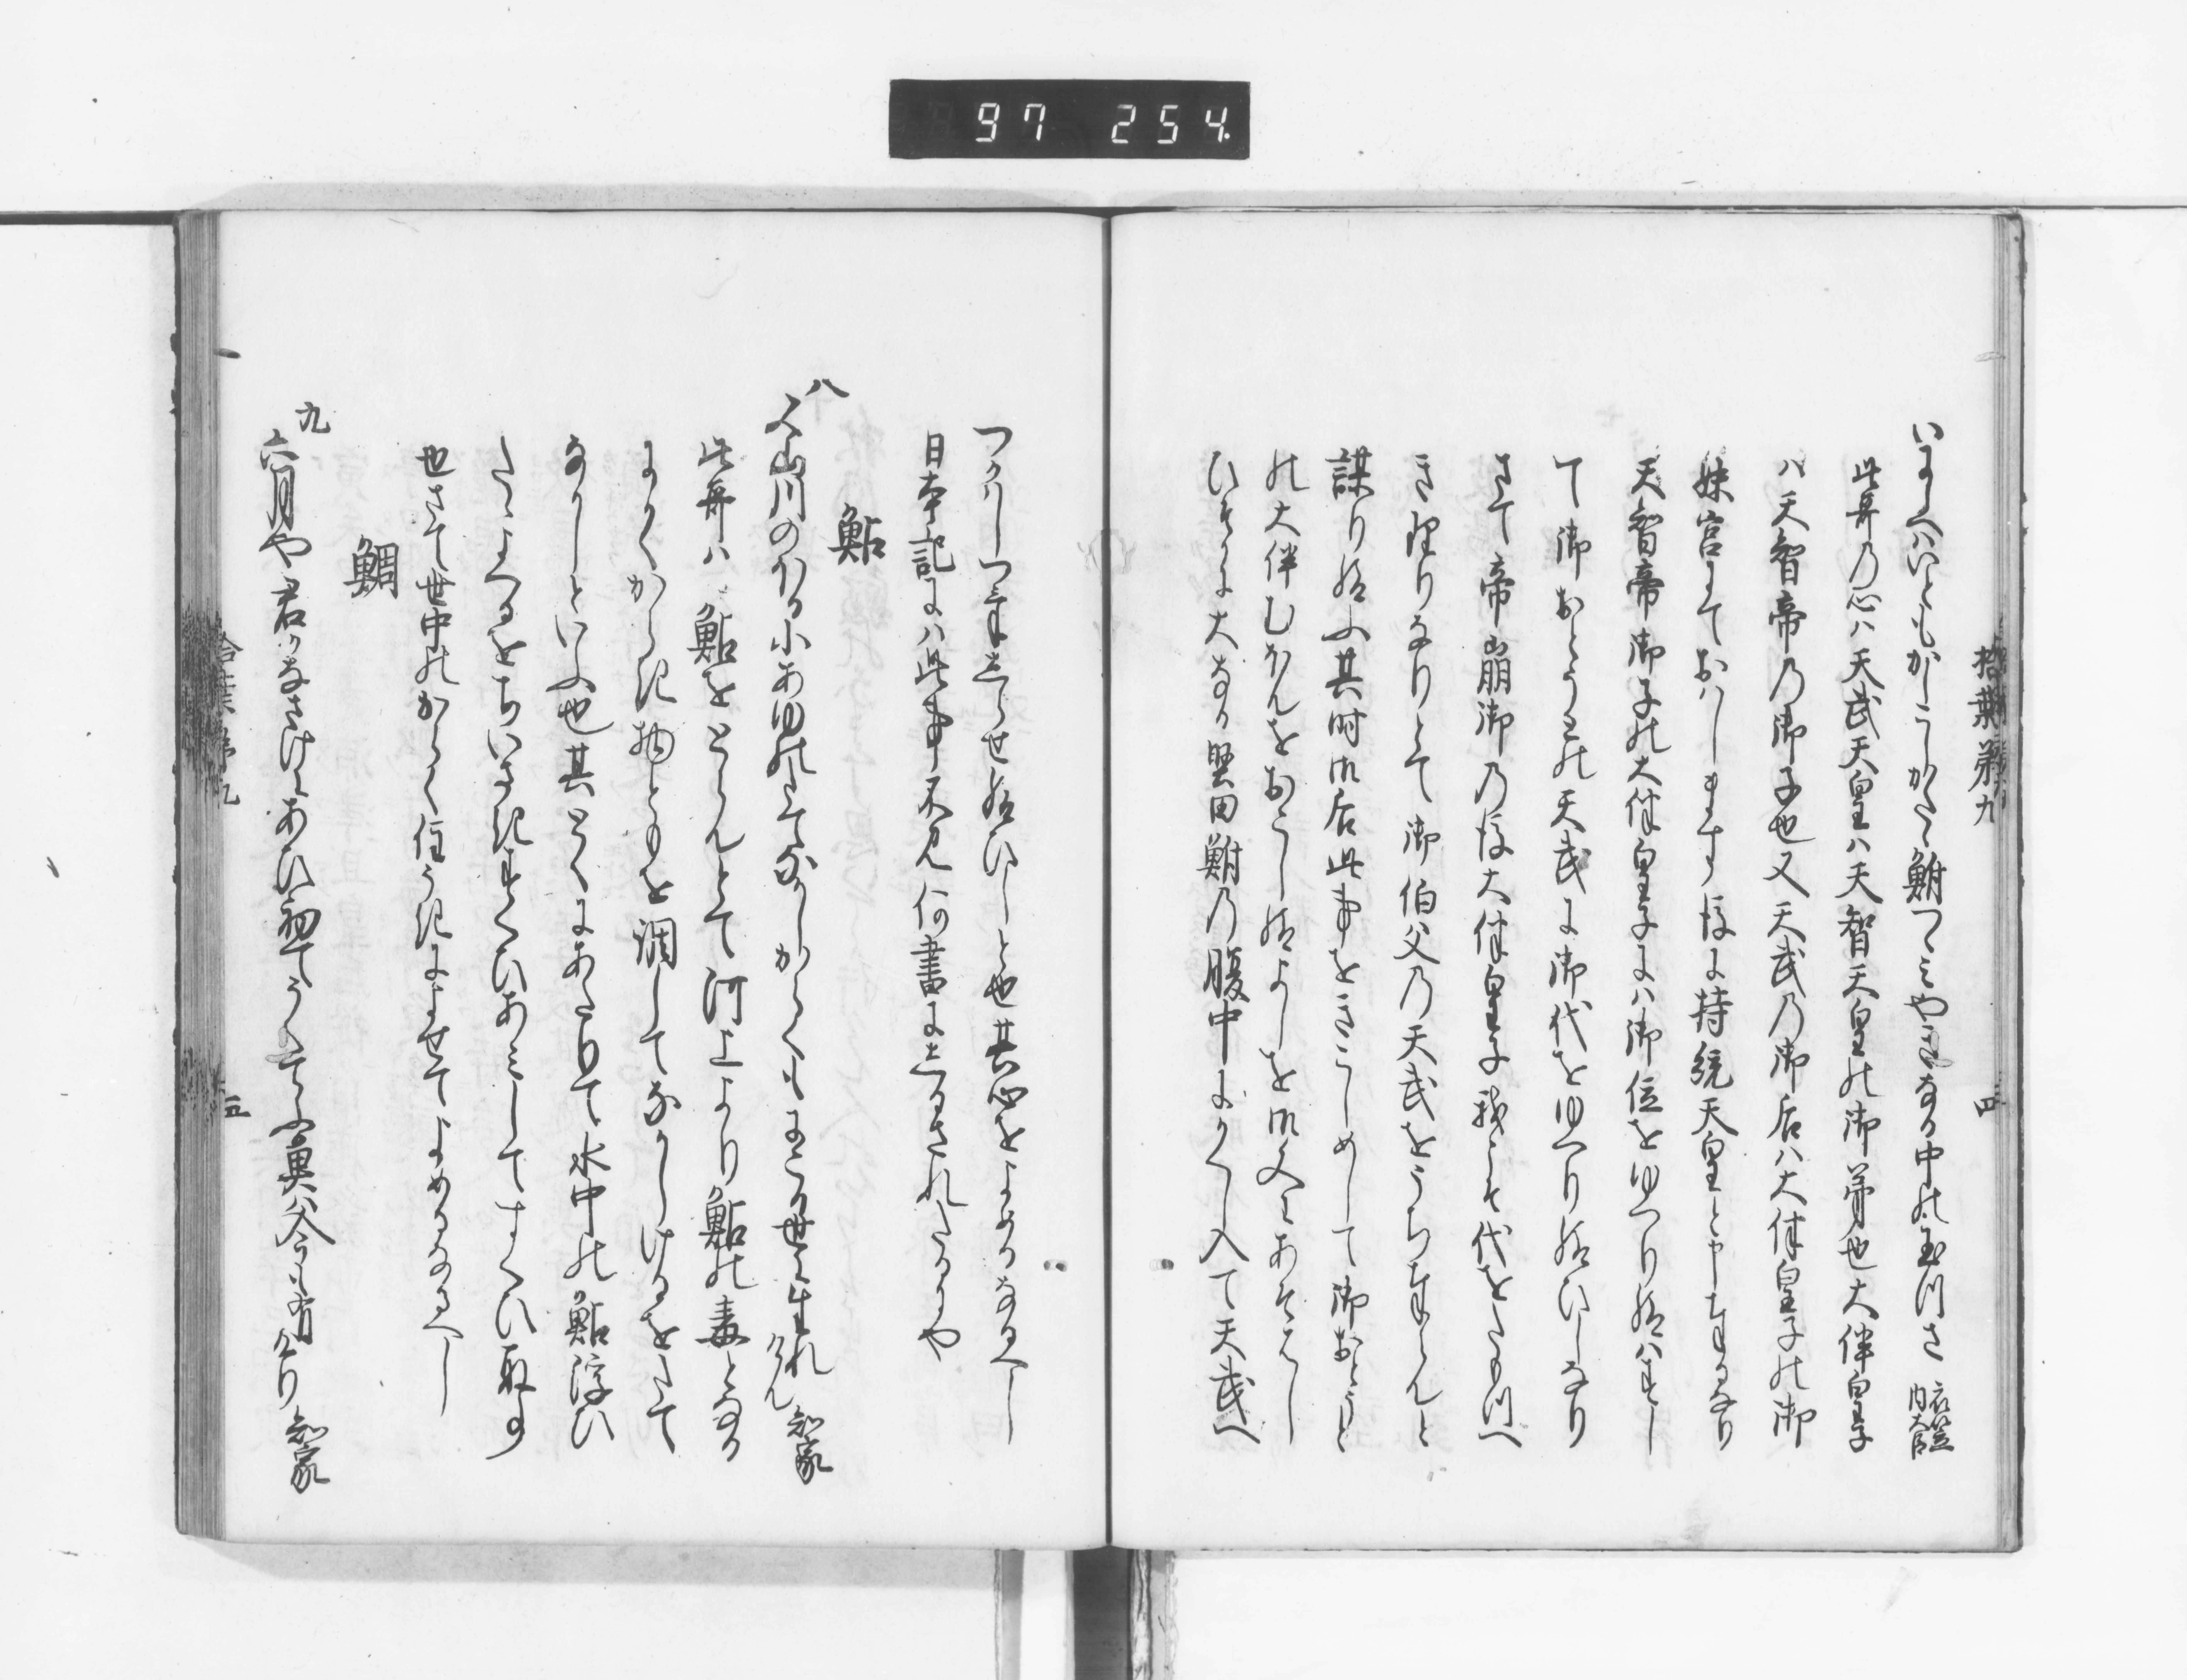 97 254
拾葉第九
四
いにしへはいともかしこしかた鮒つゝみやきなる中の玉つさ 衣笠内大臣
此哥乃心ハ天武天皇ハ天智天皇の御弟也大伴皇子
ハ天智帝乃御子也又天武乃御后ハ大伴皇子の御
妹宮にておハします後に持統天皇と申奉るなり
天智帝御子の大伴皇子にハ御位をゆつり給ハすし
て御おとうとの天武に御代をゆつり給ひしなり
さて帝崩御乃後大伴皇子我こそ代をたもつへ
き理りなりとて御伯父乃天武をうち奉らんと
謀り給ふ其時御后此事をきこしめして御おとうと
の大伴むほんをおこし給よしを御文にあそはし
ひそかに大なる堅田鮒乃腹中にかくし入て天武へ
つかハしつけしらせ給ひしと也其心をよめるなるへし
日本記にハ此事不見何書にしるされたるにや
鮎
八
山川のかハ小あゆのてなしからくもにこる世に生れけん 知家
此哥ハ鮎をとらんとて河上より鮎の毒となる
にかくからき物ともを調してなかしけるをさて
なかしといふ也其とくにあたりて水中の鮎浮ひ
たゝよへるをちいさきすくひあみしてすくひ取事
也さて世中のからく住うきによせてよめるなるへし
鯛
九
六月や君かなさけにあひ初てうくてふ魚ハ今も有けり 知家
拾葉第九
五